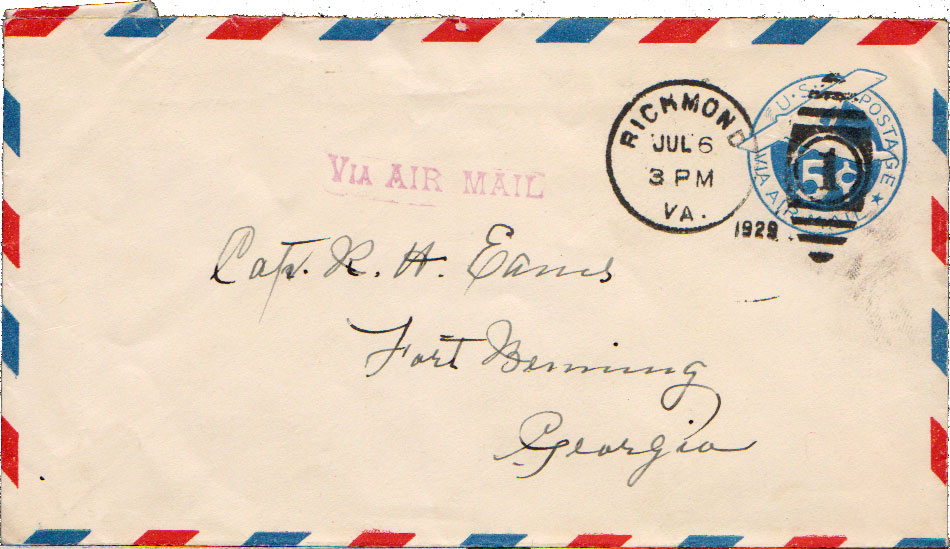 U.S. POSTAGE
5¢
VIA AIR MAIL
RICHMOND
JUL 6
3 PM
VA.
1929
1
VIA AIR MAIL
Capt. R. H. Eames
Fort Benning
Georgia